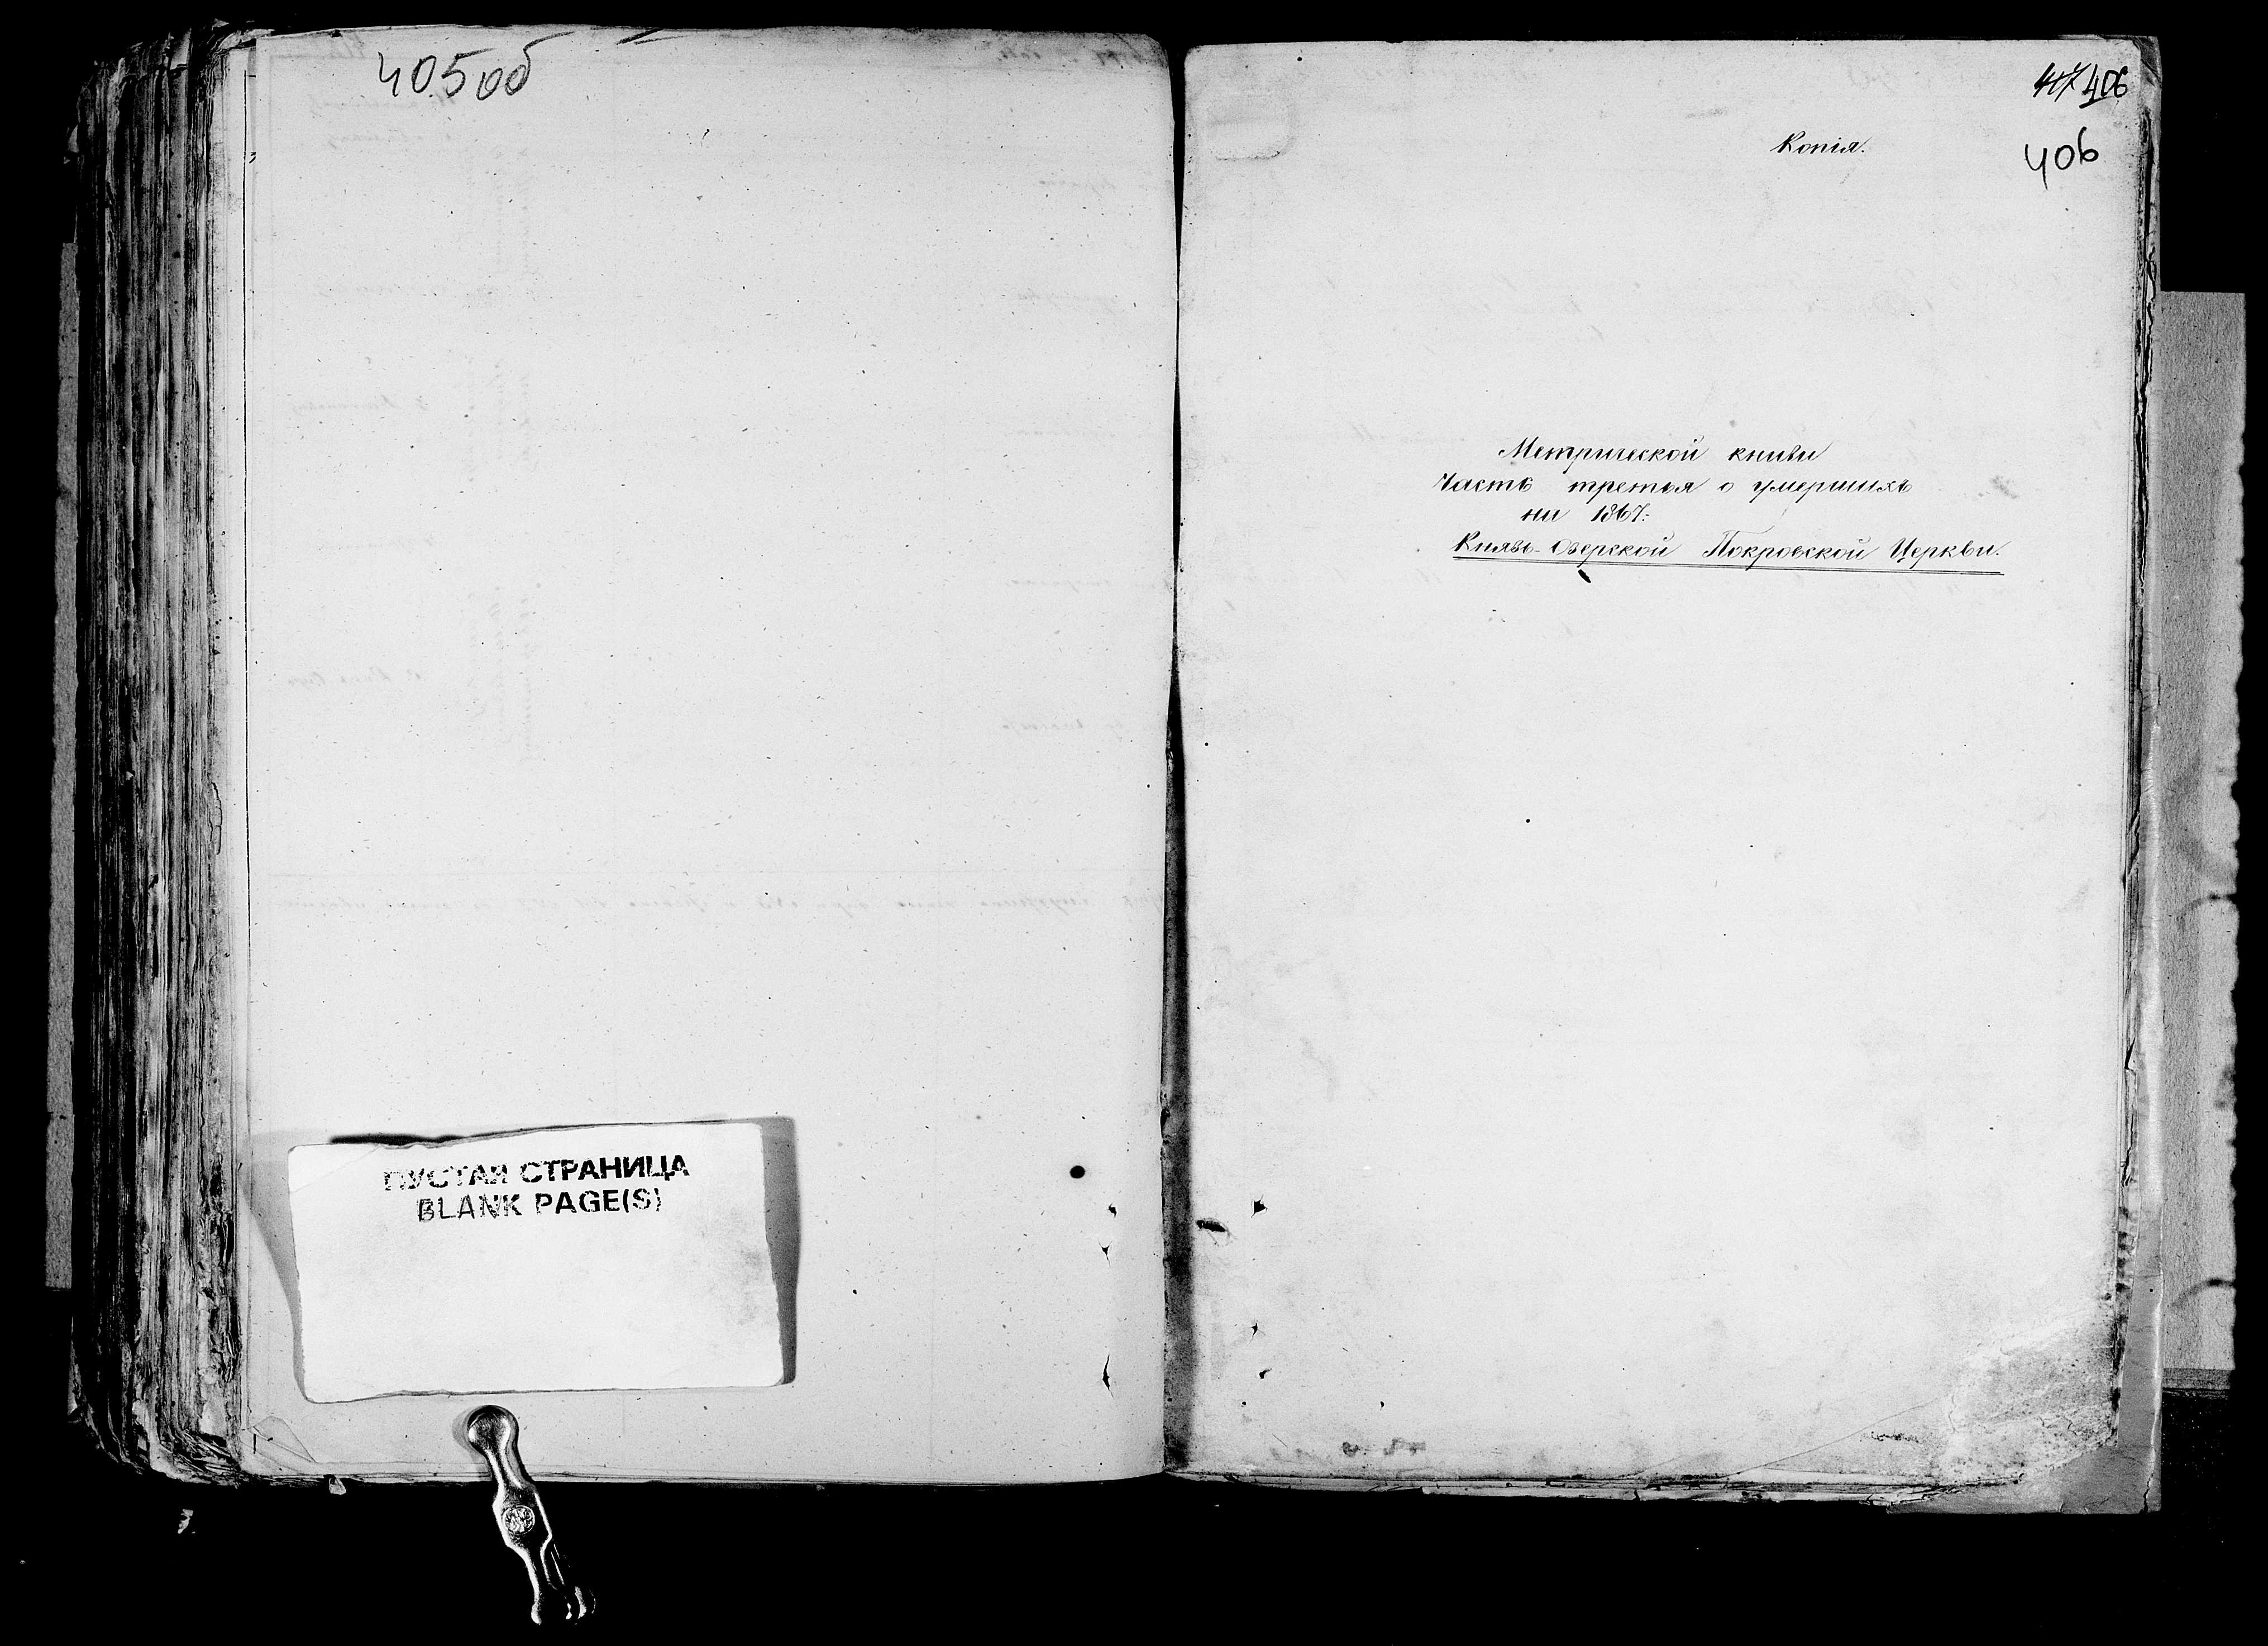 405об
ПУСТАЯ СТРАНИЦА
BLANK PAGE(S)
417 406
Копія.
406
Метрической книги
Часть третья о умершихъ
на 1867:
Князь-Озерской Покровской Церкви.